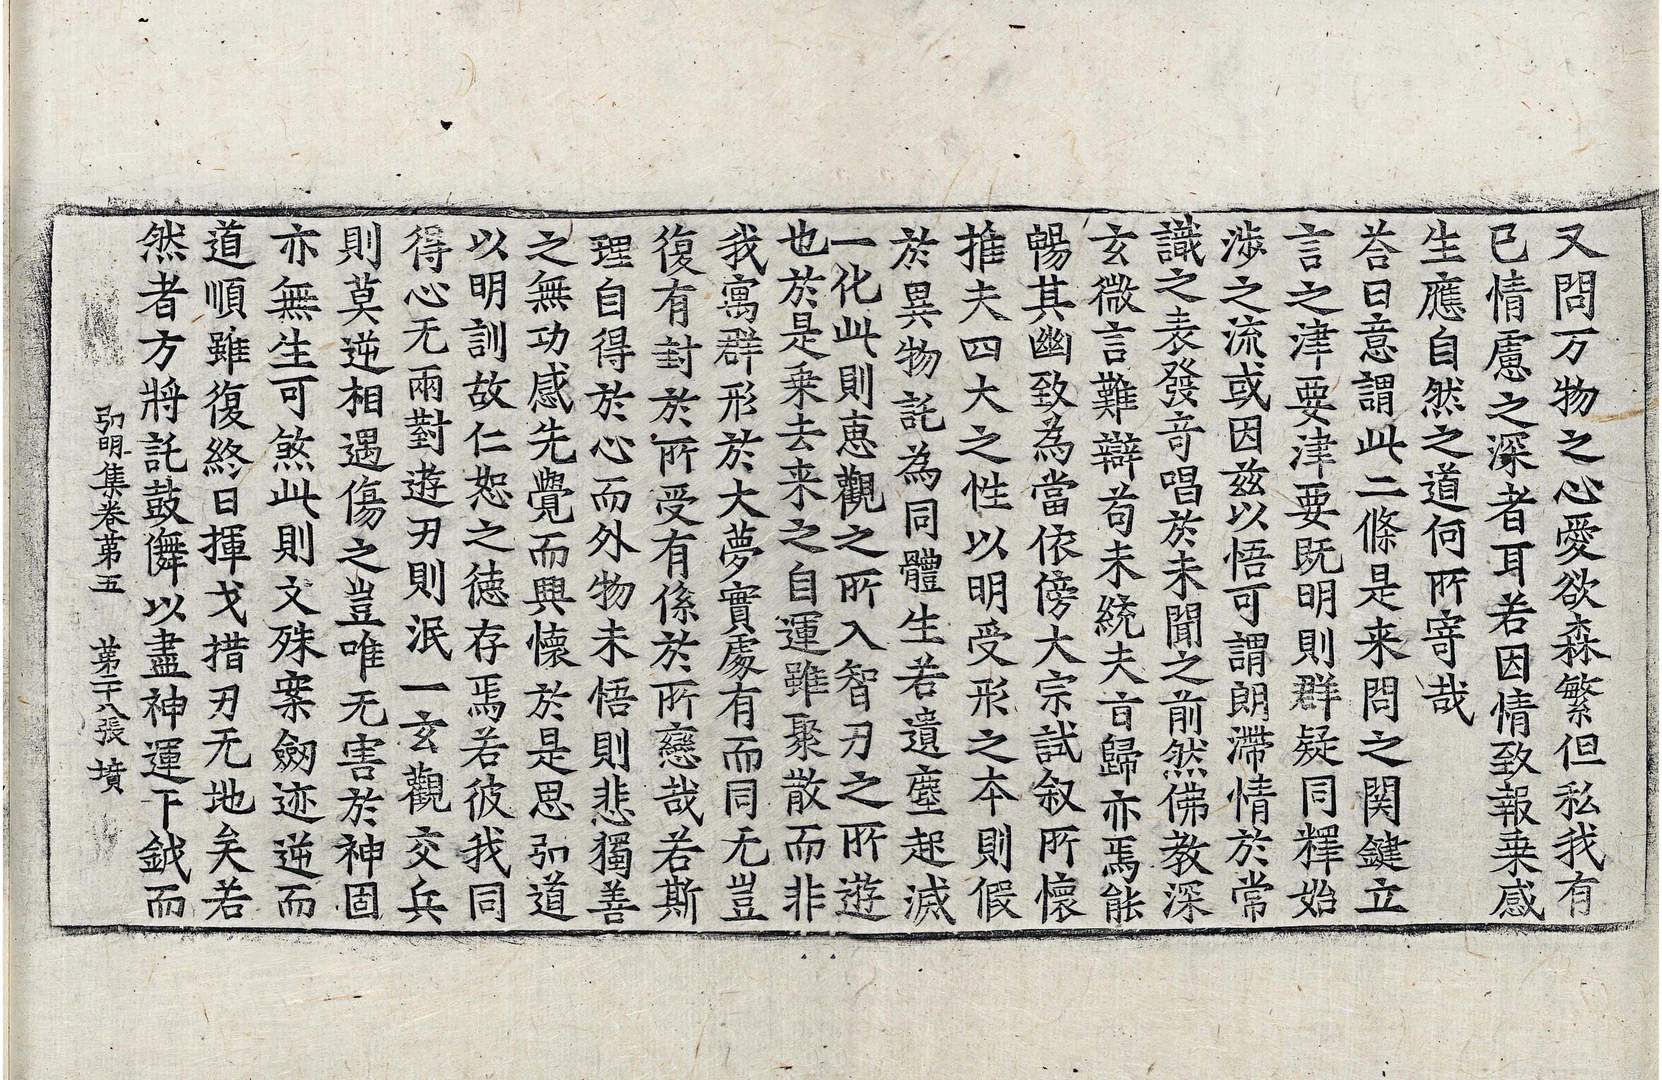 又問万物之心愛欲森繁但私我有
已情慮之深者耳若因情致報乗感
生應自然之道何所寄哉
荅曰意謂此二條是来問之関鍵立
言之津要津要既明則群疑同釋始
涉之流或因兹以悟可謂朗滯情於常
識之表發竒唱於未聞之前然佛教深
玄微言難辯苟未統夫㫖歸亦焉能
暢其幽致為當依傍大宗試叙所懷
推夫四大之性以明受形之本則假
於異物託為同體生若遺塵起滅
一化此則恵觀之所入智刃之所遊
也於是乗去来之自運雖聚散而非
我寓群形於大夢實處有而同无豈
復有封於所受有係於所戀哉若斯
理自得於心而外物未悟則悲獨善
之無功感先覺而興懷於是思弘道
以明訓故仁恕之德存焉若彼我同
得心无兩對遊刃則泯一玄觀交兵
則莫逆相遇傷之豈唯无害於神固
亦無生可煞此則文殊案劒迹逆而
道順雖復終日揮戈措刃无地矣若
然者方將託鼓儛以盡神運下鉞而
弘明集卷苐五　苐二十八張　墳